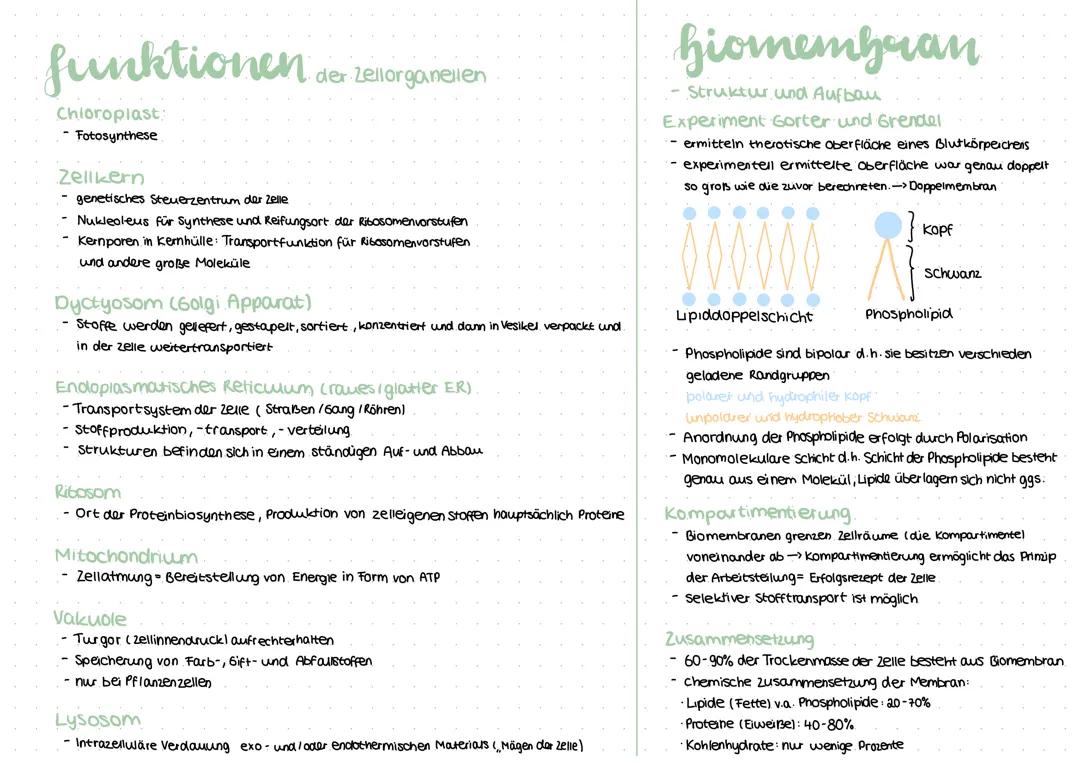 funktionen der Zellorganellen
Chloroplast:
- Fotosynthese
Zellkern
- genetisches Steuerzentrum der Zelle
- Nukleoleus für Synthese und Reifungsort der Ribosomenvorstufen
- Kernporen in Kernhülle: Transportfunktion für Ribosomenvorstufen
und andere große Moleküle
Dyctyosom (Golgi Apparat)
- Stoffe werden geliefert, gestapelt, sortiert, konzentriert und dann in Vesikel verpackt und
in der Zelle weitertransportiert
Endoplasmatisches Reticulum (raues/glatter ER)
- Transportsystem der Zelle (Straßen/Gang/Röhren)
- Stoffproduktion, -transport, -verteilung
- Strukturen befinden sich in einem ständigen Auf- und Abbau
Ribosom
- Ort der Proteinbiosynthese, Produktion von zelleigenen Stoffen hauptsächlich Proteine
Mitochondrium
- Zellatmung = Bereitstellung von Energie in Form von ATP
Vakuole
- Turgor (Zellinnendruck) aufrechterhalten
- Speicherung von Farb-, Gift- und Abfallstoffen
- nur bei Pflanzenzellen
Lysosom
- Intrazelluläre Verdauung exo- und/oder endothermischen Materials („Mägen der Zelle)
biomembran
- Struktur und Aufbau
Experiment Gorter und Grendel
- ermitteln therotische Oberfläche eines Blutkörperchens
- experimentell ermittelte Oberfläche war genau doppelt
so groß wie die zuvor berechneten. → Doppelmembran
Kopf
Schwanz
Lipiddoppelschicht
Phospholipid
- Phospholipide sind bipolar d.h. sie besitzen verschieden
geladene Randgruppen
polarer und hydrophiler Kopf
unpolarer und hydrophober Schwanz
- Anordnung der Phospholipide erfolgt durch Polarisation
- Monomolekulare Schicht d.h. Schicht der Phospholipide besteht
genau aus einem Molekül, Lipide überlagern sich nicht ggs.
Kompartimentierung
- Biomembranen grenzen Zellräume (die Kompartimente)
voneinander ab → Kompartimentierung ermöglicht das Prinzip
der Arbeitsteilung = Erfolgsrezept der Zelle
- selektiver Stofftransport ist möglich
Zusammensetzung
- 60-90% der Trockenmasse der Zelle besteht aus Biomembran
- chemische Zusammensetzung der Membran:
· Lipide (Fette) v.a. Phospholipide: 20-70%
· Proteine (Eiweiße): 40-80%
· Kohlenhydrate: nur wenige Prozente